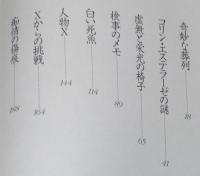 奇妙な葬列
18
コリン・エステラーゼの謎
41
虚無と栄光の椅子
65
検事のメモ
89
白い死魚
114
人物X
144
Xからの挑戦
164
痴情の傷痕
188